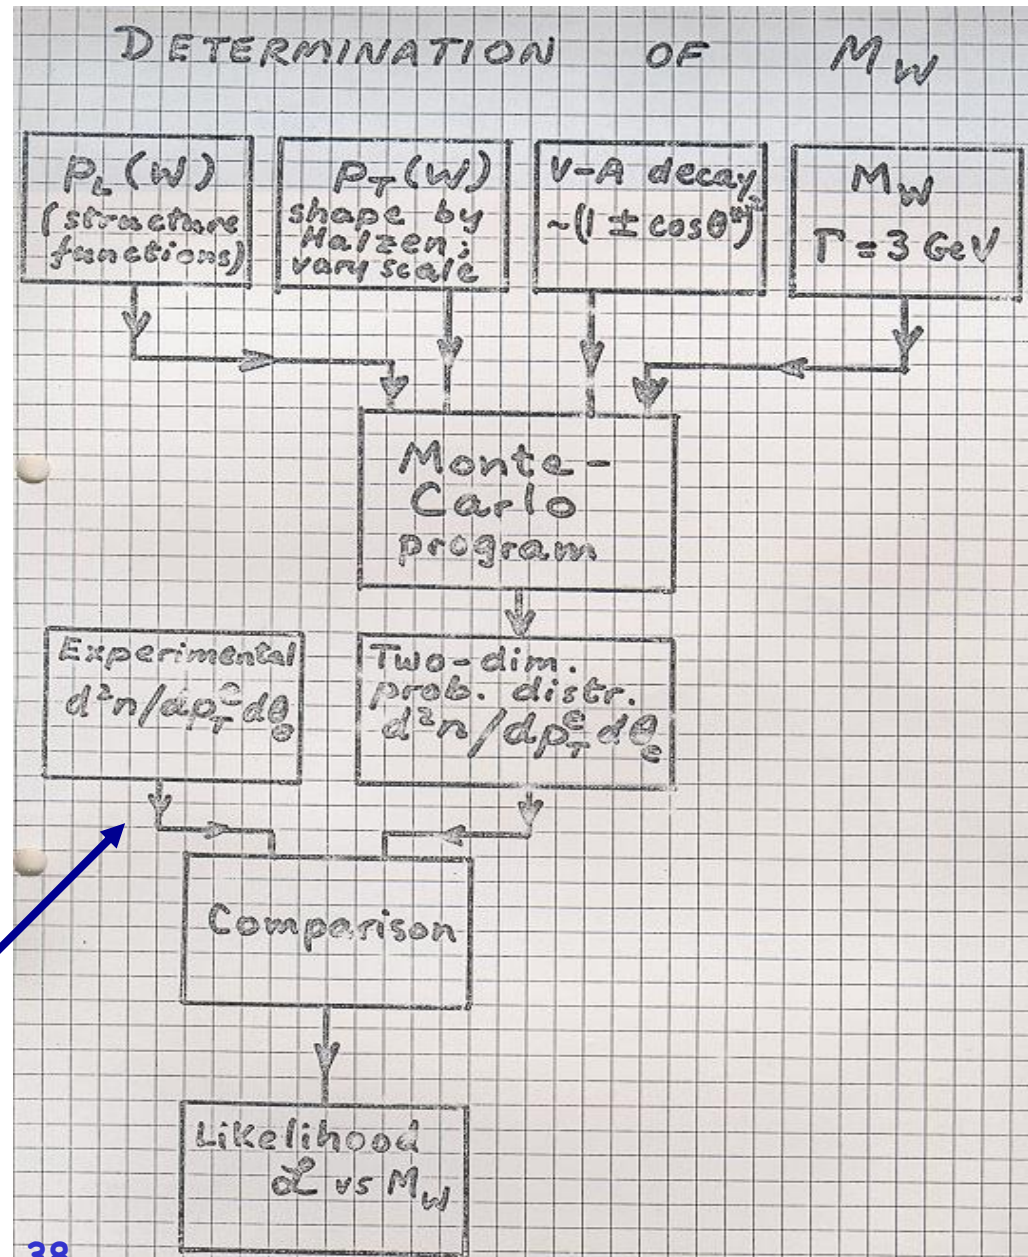 DETERMINATION OF M_W
P_L(W)
(structure
functions)
P_T(W)
shape by
Halzen;
vary scale
V-A decay
~(1 ± cosθ*)²
M_W
Γ = 3 GeV
Monte-
Carlo
program
Experimental
d²n/dp_T^e dθ_e
Two-dim.
prob. distr.
d²n/dp_T^e dθ_e
Comparison
Likelihood
ℒ vs M_W
38